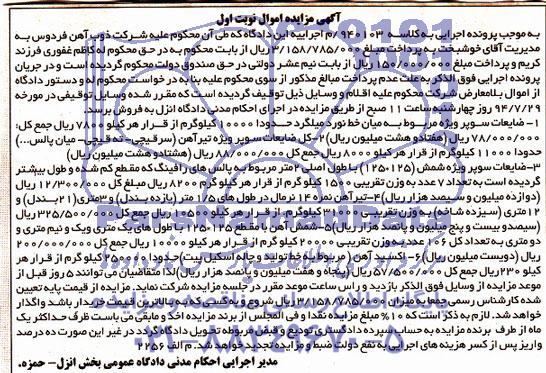 آگهی مزایده اموال نوبت اول
به موجب پرونده اجرایی به کلاسه ۹۴۰۱۰۳/م اجراییه این دادگاه که طی آن محکوم علیه شرکت ذوب آهن فردوس به
مدیریت آقای خوشبخت به پرداخت مبلغ ۳/۱۵۸/۷۸۵/۰۰۰ ریال از بابت محکوم به در حق محکوم له کاظم غفوری فرزند
کریم و پرداخت مبلغ ۱۵۰/۰۰۰/۰۰۰ ریال از بابت نیم عشر دولتی در حق صندوق دولت محکوم گردیده است و در جریان
پرونده اجرایی فوق الذکر به علت عدم پرداخت مبالغ مذکور از سوی محکوم علیه بنا به درخواست محکوم له و دستور دادگاه
از اموال بلامعارض شرکت محکوم علیه اقلام و وسایل ذیل توقیف گردیده است که مقرر شده وسایل توقیفی در مورخه
۹۴/۷/۲۹ روز چهارشنبه ساعت ۱۱ صبح از طریق مزایده در اجرای احکام مدنی دادگاه انزل به فروش برسد
۱- ضایعات سوپر ویژه مربوط به میان خط نورد میلگرد حدودا ۱۰۰۰۰ کیلوگرم از قرار هر کیلو ۷۸۰۰ ریال جمع کل:
۷۸/۰۰۰/۰۰۰ ریال (هفتاد و هشت میلیون ریال) ۲- کل ضایعات سوپر ویژه تیرآهن (سرقیچی- ته قیچی- میان پالس...)
حدودا ۱۱۰۰۰ کیلوگرم از قرار هر کیلو ۸۰۰۰ ریال جمع کل ۸۸/۰۰۰/۰۰۰ ریال (هشتاد و هشت میلیون ریال)
۳- ضایعات سوپر ویژه شمش (۱۲۵×۱۲۵) با طول اصلی ۲ متر مربوط به پالس های رافینگ که مقطع کم شده و طول بیشتر
گردیده است به تعداد ۷ عدد به وزن تقریبی ۱۵۰۰ کیلوگرم از قرار هر کیلوگرم ۸۲۰۰ ریال مبلغ کل ۱۲/۳۰۰/۰۰۰ ریال
(دوازده میلیون و سیصد هزار ریال) ۴- تیرآهن نمره ۱۴۰ نرمال در طول های ۱/۵ متر (یازده بندل) و ۳ متری (۲۱ بندل) و
۱۲ متری (سیزده شاخه) به وزن تقریبی کیلوگرم از قرار هر کیلو ۱۰۵۰۰ ریال جمع کل ۳۲۵/۵۰۰/۰۰۰ ریال
(سیصد و بیست و پنج میلیون و پانصد هزار ریال) ۵- شمش آهن با مقطع ۱۲۵×۱۲۵ با طول های یک متری و یک و نیم متری و
دو متری به تعداد کل عدد به وزن تقریبی ۲۰۰۰۰ کیلوگرم از قرار هر کیلو ۱۰۰۰۰ ریال جمع کل ۲۰۰/۰۰۰/۰۰۰
ریال (دویست میلیون ریال) ۶- اکسید آهن (مربوط به خط تولید و چاله اسکیل پیت) حدودا کیلوگرم از قرار هر
کیلو ۲۳۰ ریال جمع کل ۵۷/۵۰۰/۰۰۰ ریال (پنجاه و هفت میلیون و پانصد هزار ریال) لذا متقاضیان می توانند ۵ روز قبل از
موعد مزایده از وسایل فوق الذکر بازدید و راس ساعت موعد مقرر در جلسه مزایده شرکت نماید. مزایده از قیمت پایه تعیین
شده کارشناس رسمی جمعا به میزان ریال شروع و به کسی که بالاترین قیمت خریدار باشد واگذار
خواهد شد. لازم به ذکر است که ۱۰% مبلغ مزایده نقدا و فی المجلس از برنده اخذ و مابقی می بایست ظرف حداکثر یک
ماه از طرف برنده مزایده به حساب سپرده دادگستری تودیع و قبض مربوطه تحویل دادگاه گردد در غیر این صورت ده درصد
واریز پس از کسر هزینه های اجرایی به نفع دولت ضبط و مزایده تجدید خواهد شد. م الف ۶۲۵۶
مدیر اجرایی احکام مدنی دادگاه عمومی بخش انزل- حمزه.
۰۲۱-۸۸۳۴۹۶۷۰-۵